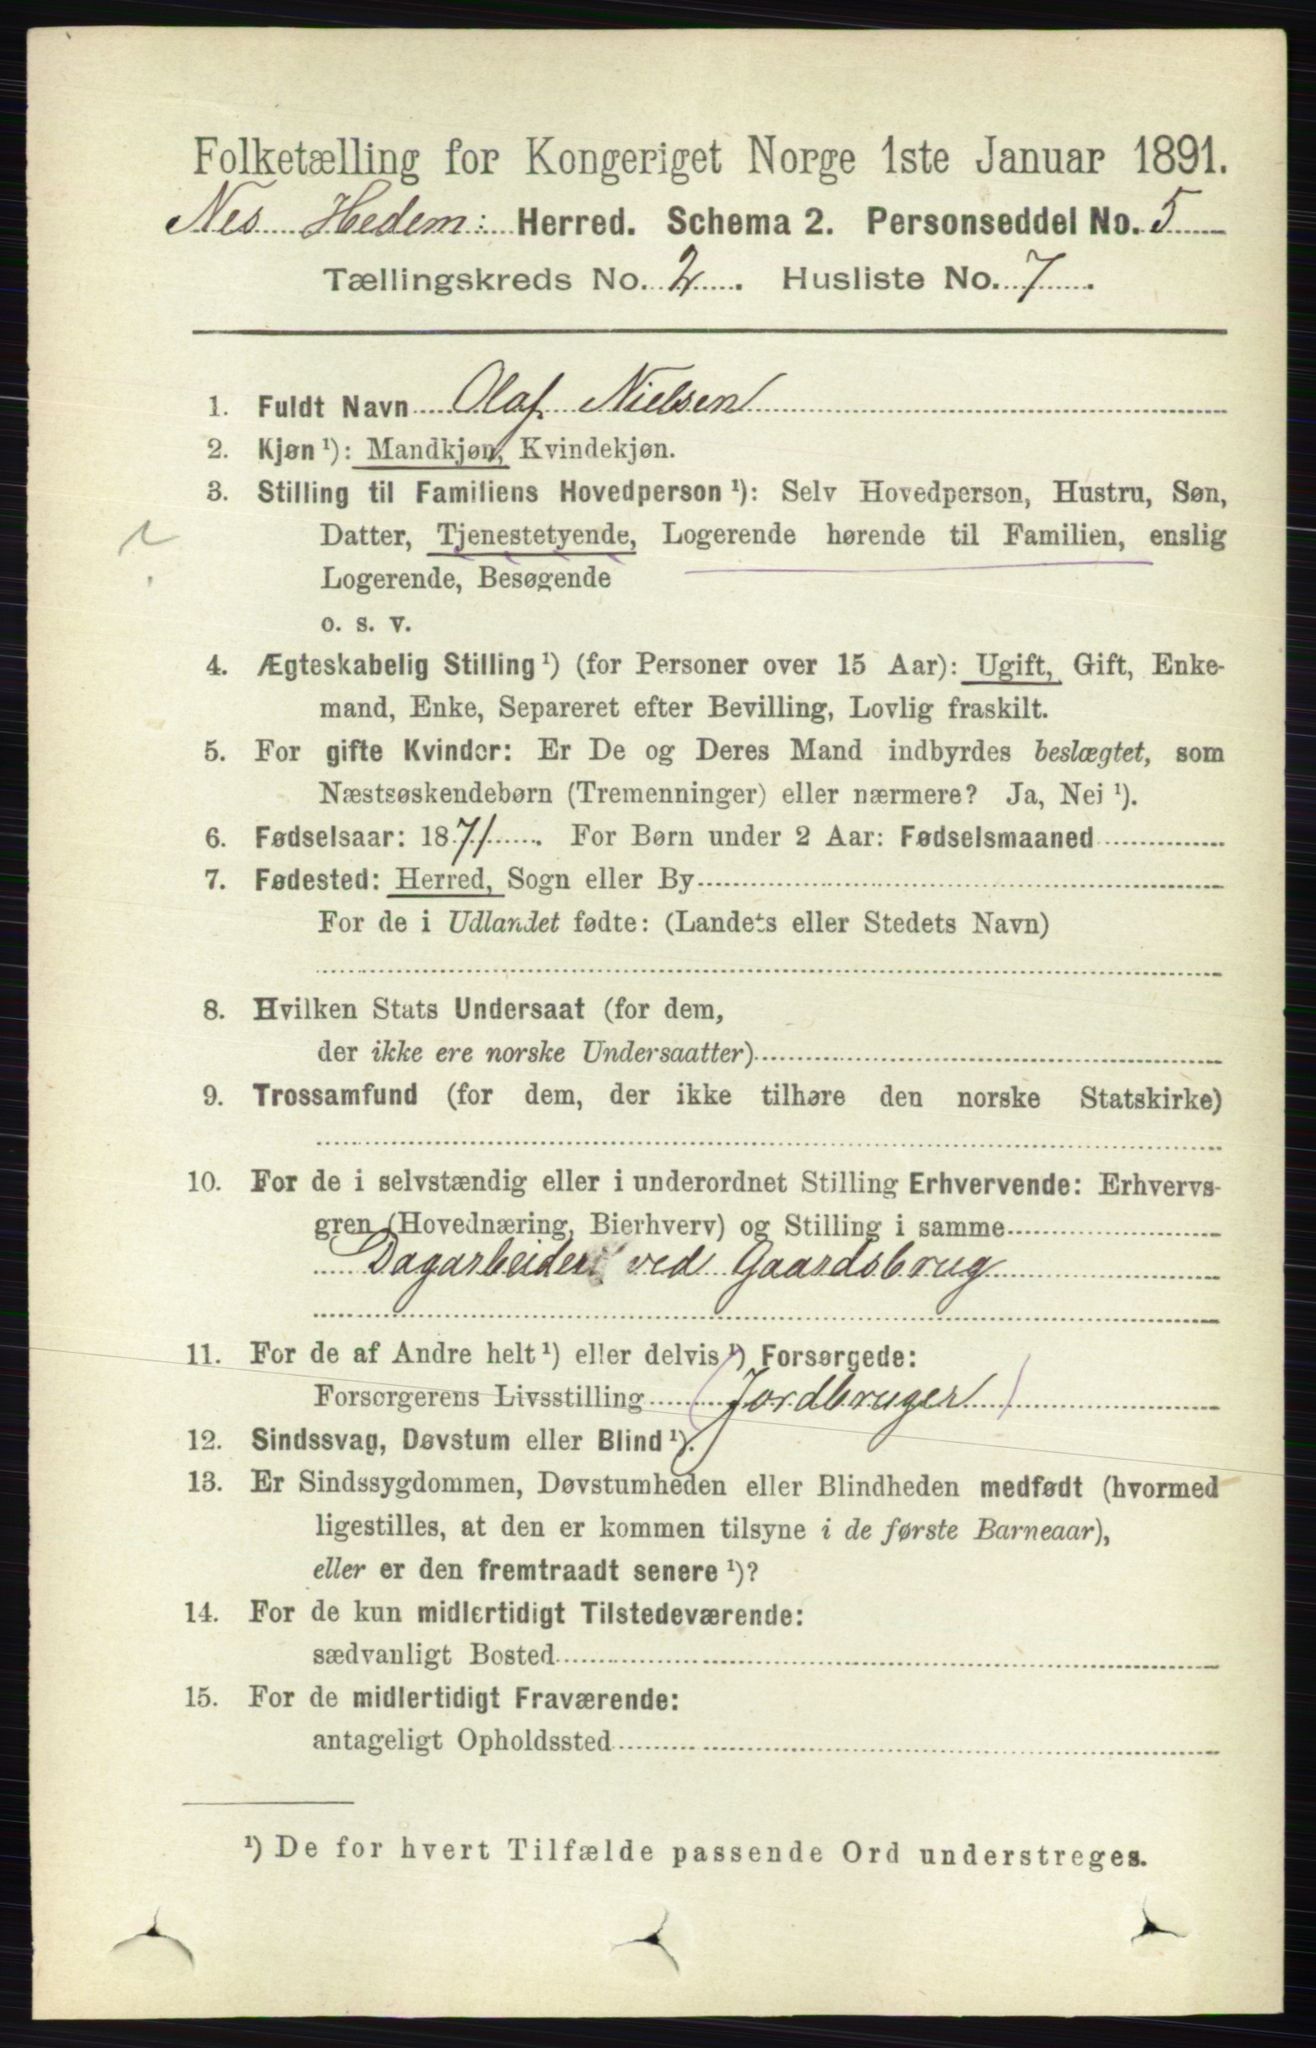 Folketælling for Kongeriget Norge 1ste Januar 1891.
Nes Hedem: Herred. Schema 2. Personseddel No. 5
Tællingskreds No. 2. Husliste No. 7.
1. Fuldt Navn Olaf Nielsen
2. Kjøn ¹): Mandkjøn, Kvindekjøn.
3. Stilling til Familiens Hovedperson ¹): Selv Hovedperson, Hustru, Søn,
Datter, Tjenestetyende, Logerende hørende til Familien, enslig
Logerende, Besøgende
o. s. v.
4. Ægteskabelig Stilling ¹) (for Personer over 15 Aar): Ugift, Gift, Enke-
mand, Enke, Separeret efter Bevilling, Lovlig fraskilt.
5. For gifte Kvinder: Er De og Deres Mand indbyrdes beslægtet, som
Næstsøskendebørn (Tremenninger) eller nærmere? Ja, Nei ¹).
6. Fødselsaar: 1871. For Børn under 2 Aar: Fødselsmaaned
7. Fødested: Herred, Sogn eller By
For de i Udlandet fødte: (Landets eller Stedets Navn)
8. Hvilken Stats Undersaat (for dem,
der ikke ere norske Undersaatter)
9. Trossamfund (for dem, der ikke tilhøre den norske Statskirke)
10. For de i selvstændig eller i underordnet Stilling Erhvervende: Erhvervs-
gren (Hovednæring, Bierhverv) og Stilling i samme
Dagarbeider ved Gaardsbrug
11. For de af Andre helt ¹) eller delvis ¹) Forsørgede:
Forsørgerens Livsstilling (Jordbruger)
12. Sindssvag, Døvstum eller Blind ¹).
13. Er Sindssygdommen, Døvstumheden eller Blindheden medfødt (hvormed
ligestilles, at den er kommen tilsyne i de første Barneaar),
eller er den fremtraadt senere ¹)?
14. For de kun midlertidigt Tilstedeværende:
sædvanligt Bosted
15. For de midlertidigt Fraværende:
antageligt Opholdssted
¹) De for hvert Tilfælde passende Ord understreges.